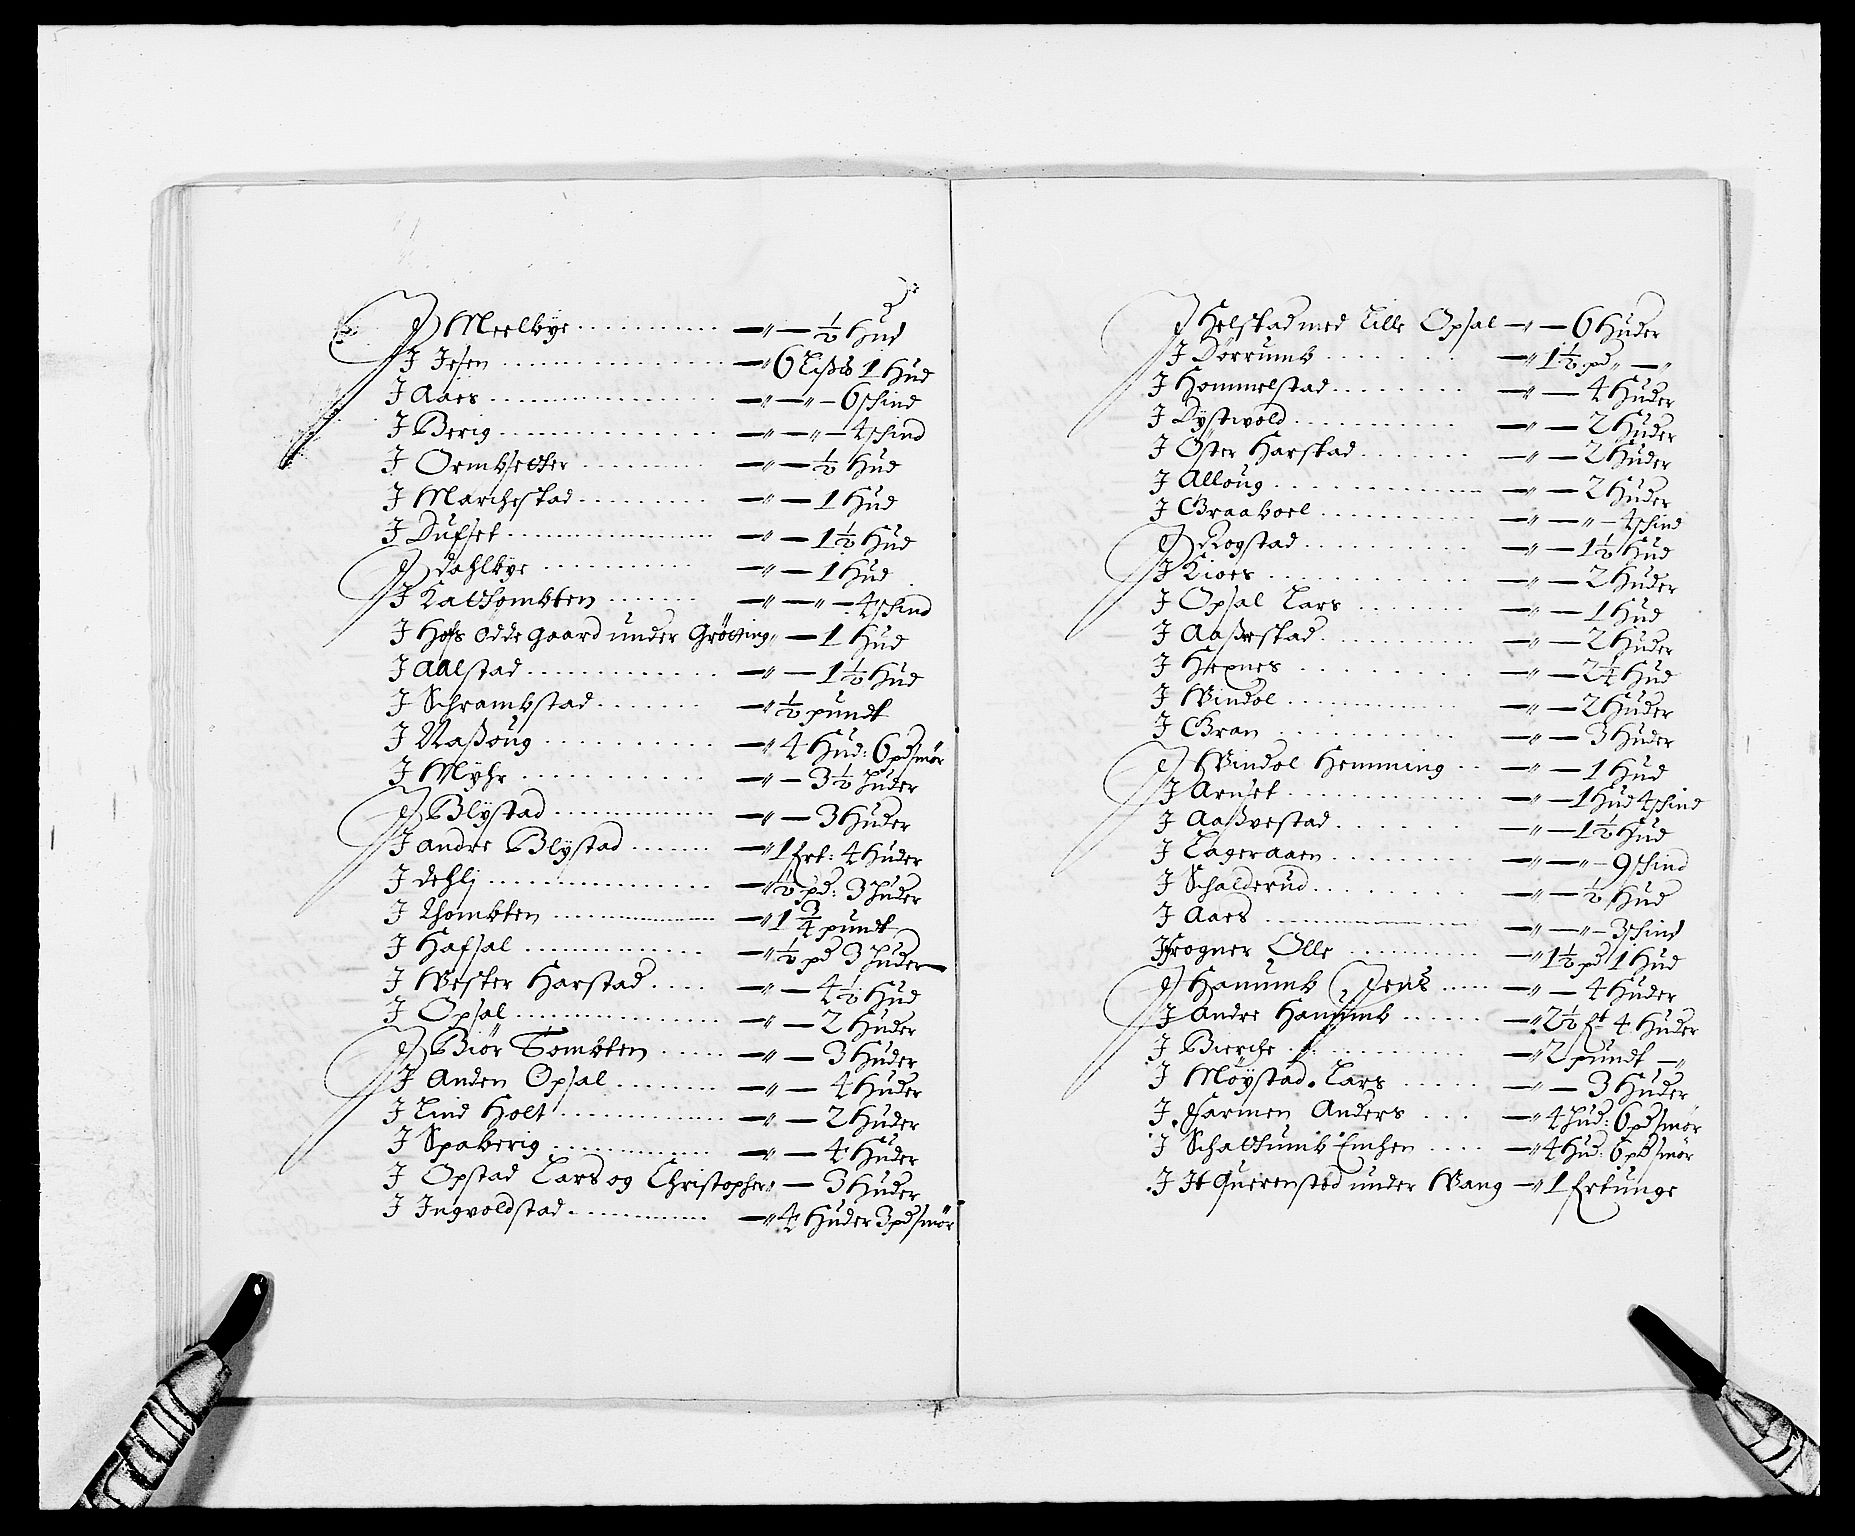 J Meelbye ............ — „ — ½ Hud
J Jesen ............ — „ 6 Lißb 1 Hud
J Aaes ............ — „ — „ — 6 schind
J Berig ............ — „ — „ — 4 schind
J Ormbsetter ............ — „ — ½ Hud
J Marchestad ............ — „ — 1 Hud
J Dufset ............ — „ — 1½ Hud
J Dahlbye ............ — „ — 1 Hud
J Kaltombten ....... — „ — „ — 4 schind
J Hofs Odde gaard under Grøtting „ — 1 Hud
J Aalstad ............ — „ — 1½ Hud
J Schrambstad ....... — „ ½ pundt
J Naßoug ............ — „ 4 Hud: 6 pd smör
J Myhr ............ — „ — 3½ Huder
J Blystad ............ — „ — 3 Huder
J andre Blystad ....... — „ 1 Ert: 4 Huder
J Dehlj ............ — „ ½ pd: 3 Huder
J Thombten ............ — „ 1¾ pundt
J Hafsal ............ — „ ½ pd 3 Huder
J Wester Harstad .... — „ — 4½ Hud
J Opsal ............ — „ — 2 Huder
J Biör Tombten ...... — „ — 3 Huder
J Anden Opsal ........ — „ — 4 Huder
J Lind Holt ............ — „ — 2 Huder
J Spaberig ............ — „ — 4 Huder
J Opstad Lars og Christopher „ — 3 Huder
J Ingvoldstad ............ — „ 4 Huder 3 pd smör
J Helstad med Lille Opsal — „ — 6 Huder
J Dörrumb ........ — „ 1½ pd „ — „
J Hommelstad ........ — „ — 4 Huder
J Dystvold ............ — „ — 2 Huder
J Öster Harstad ....... — „ — 2 Huder
J Alloug ............ — „ — 2 Huder
J Graaboel ............ — „ — „ — 4 schind
J Rogstad ............ — „ — 1½ Hud
J Kioes ............ — „ — 2 Huder
J Opsal Lars ........ — „ — 1 Hud
J Aaßestad ............ — „ — 2 Huder
J Hexnes ............ — „ — 2¼ Hud
J Windol ............ — „ — 2 Huder
J Gran ............ — „ — 3 Huder
J Windol Hemming .. — „ — 1 Hud
J Arnset ............ — „ — 1 Hud 4 schind
J Aaßvestad ....... — „ — 1½ Hud
J Lageraaen ......... — „ — „ — 9 schind
J Schalderud ......... — „ — ½ Hud
J Aaes ............ — „ — „ — 3 schind
J Frogner Olle .......... — „ 1½ pd 1 Hud
J Hanumb Jens ..... — „ — 4 Huder
J Andre Hanumb ...... — „ 2½ 4 Huder
J Bierche ............ — „ 2 pundt — „
J Möystad Lars ...... — „ — 3 Huder
J Farmen Anders .... — „ 4 Hud: 6 pd smör
J Schattumb Emhen .... — „ 4 Hud: 6 pd smör
J It Querenstöd under Wang — „ 1 Ertunge